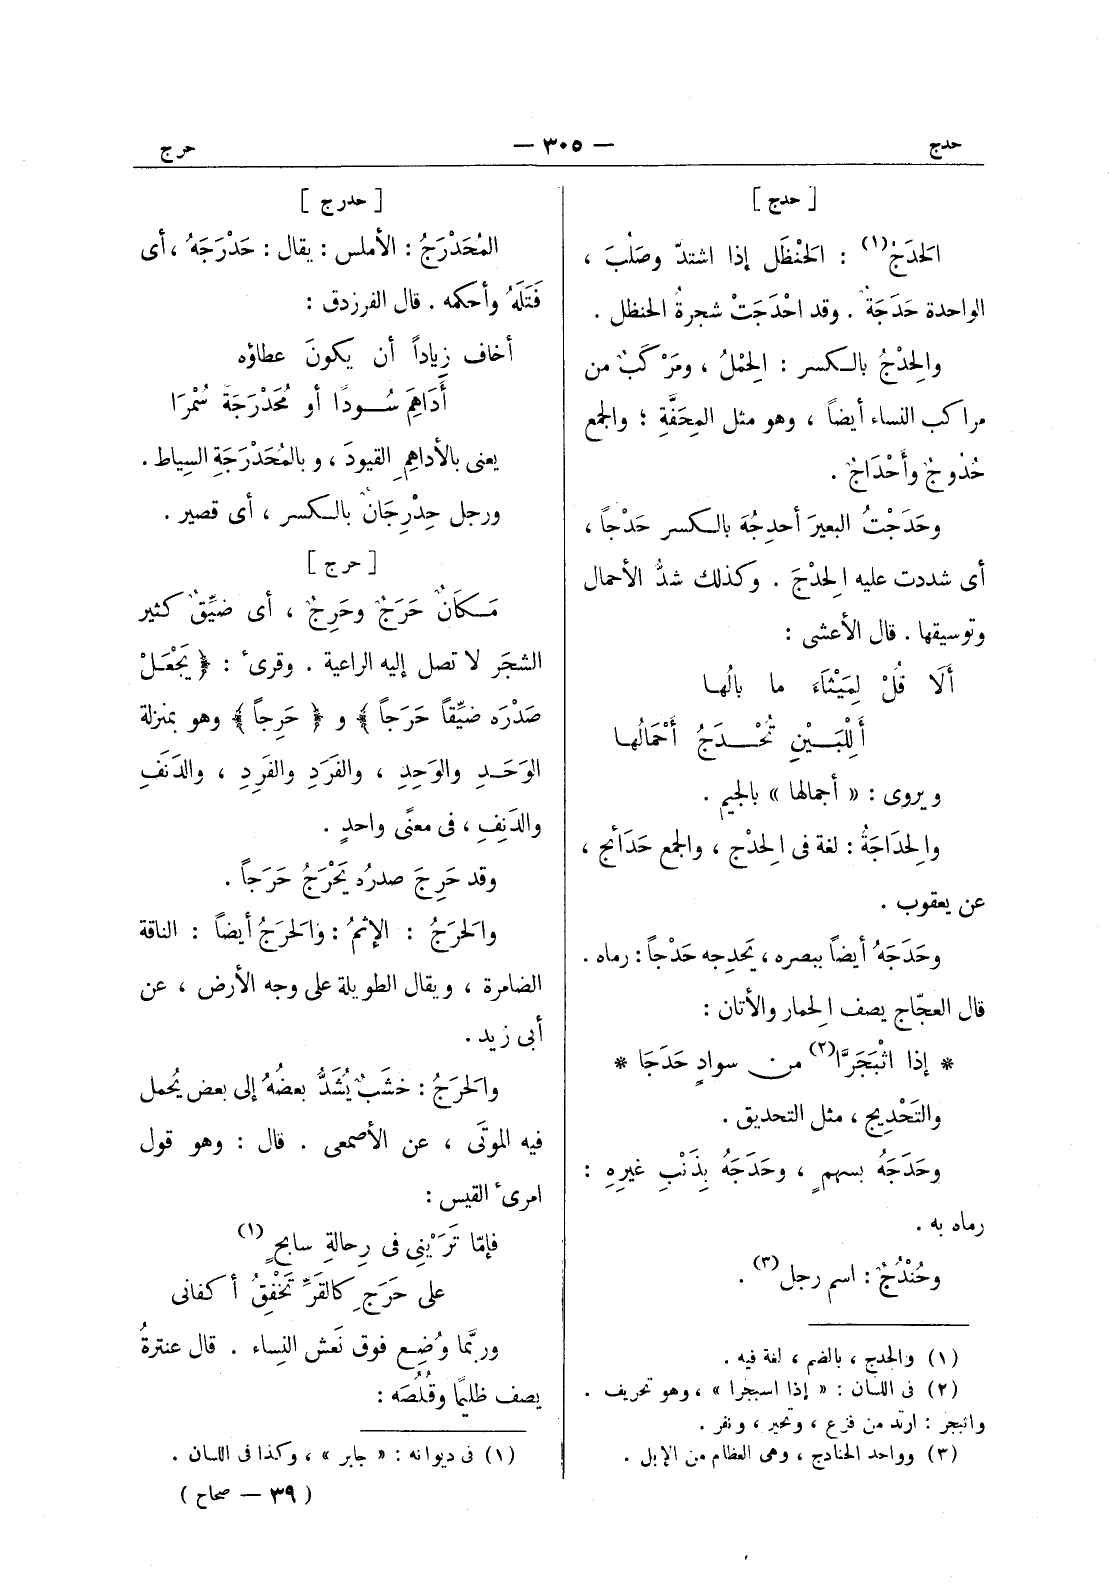 حدج — ٣٠٥ — حرج
[ حدج ]
الَحدَجُ(١) : الَحنْظَل إذا اشتدّ وصَلُبَ ،
الواحدة حَدَجَةٌ . وقد احْدَجَتْ شجرةُ الحنظل .
والِحدْجُ بالكسر : الِحمْلُ ، ومَرْكَبٌ من
مراكب النساء أيضاً ، وهو مثل المِحَفَّةِ ؛ والجمع
حُدُوجٌ وأَحْدَاجٌ .
وحَدَجْتُ البعيرَ أحدِجُهَ بالكسر حَدْجاً ،
أى شددت عليه الِحدْجَ . وكذلك شدُّ الأحمال
وتوسيقها . قال الأعشى :
أَلَا قُلْ لِمَيْثَاءَ ما بالُها
أَلِلْبَيْنِ تُحْدَجُ أَحْمَالُها
ويروى : « أجمالها » بالجيم .
والِحدَاجَةُ : لغة فى الِحدْج ، والجمع حَدَائج ،
عن يعقوب .
وحَدَجَهُ أيضاً ببصره ، يَحدِجه حَدْجاً : رماه .
قال العجّاج يصف الِحمار والأتان :
* إذا اثْبَجَرَّا(٢) من سوادٍ حَدَجَا *
والتَحْدِيج ، مثل التحديق .
وحَدَجَهُ بسهمٍ ، وحَدَجَهُ بِذَنْبِ غيرِهِ :
رماه به .
وحُنْدُجٌ : اسم رجل(٣) .
(١) والحدج ، بالضم ، لغة فيه .
(٢) فى اللسان : « إذا اسبجرا » ، وهو تحريف .
واثبجر : ارتد من فزع ، وتحير ، ونفر .
(٣) وواحد الحنادج ، وهى العظام من الإبل .
[ حدرج ]
المُحَدْرَجُ : الأملس : يقال : حَدْرَجَهُ ، أى
فَتَلَهُ وأحكمه . قال الفرزدق :
أخاف زِياداً أن يكونَ عطاؤه
أَدَاهِمَ سُودًا أو مُحَدْرَجَةً سُمْرَا
يعنى بالأداهِمِ القيودَ ، وبالمُحَدْرَجَةِ السِياط .
ورجل حِدْرِجَانٌ بالكسر ، أى قصير .
[ حرج ]
مَكَانٌ حَرَجٌ وحَرِجٌ ، أى ضيِّقٌ كثير
الشجَر لا تصل إليه الراعية . وقرىء : ﴿ يَجْعَلْ
صَدْرَه ضيِّقاً حَرَجاً ﴾ و ﴿ حَرِجاً ﴾ وهو بمنزلة
الوَحَدِ والوَحِدِ ، والفَرَدِ والفَرِدِ ، والدَنَفِ
والدَنِفِ ، فى معنًى واحدٍ .
وقد حَرِجَ صدرُه يَحْرَجُ حَرَجاً .
والَحرَجُ : الإثمُ : والَحرَجُ أيضاً : الناقة
الضامرة ، ويقال الطويلة على وجه الأرض ، عن
أبى زيد .
والَحرَجُ : خشَبٌ يُشَدُّ بعضُهُ إلى بعض يُحمل
فيه الموتَى ، عن الأصمعى . قال : وهو قول
امرىء القيس :
فإمّا تَرَيْنِى فى رِحالةِ سابحٍ(١)
على حَرَجٍ كالقَرِّ تَخْفِقُ أكفانى
وربَّما وُضِع فوق نَعش النِساء . قال عنترةُ
يصف ظليمًا وقُلُصَه :
(١) فى ديوانه : « جابر » ، وكذا فى اللسان .
( ٣٩ — صحاح )